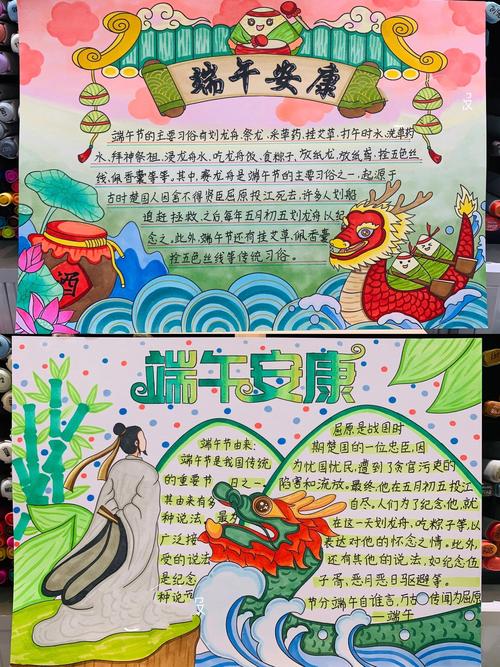 端午安康
端午节的主要习俗有划龙舟、祭龙、采草药、挂艾草、打午时水、洗草药
水、拜神祭祖、浸龙舟水、吃龙舟饭、食粽子、放纸龙、放纸鸢、拴五色丝
线、佩香囊等等。其中,赛龙舟是端午节的主要习俗之一,起源于
古时楚国人因舍不得贤臣屈原投江死去,许多人划船
追赶拯救。之后每年五月初五划龙舟以纪
念之。此外,端午节还有挂艾草、佩香囊、
拴五色丝线等传统习俗。
酒
端午安康
端午节由来:
端午节是我国传统
的重要节日之一,
其由来有多
种说法,最为
广泛接
受的说法
是纪念
种说
屈原是战国时
期楚国的一位忠臣,因
为忧国忧民,遭到了贪官污吏的
陷害和流放。最终,他在五月初五投江
自尽。人们为了纪念他,就
在这一天划龙舟、吃粽子等以
表达对他的怀念之情。此外,
还有其他的说法,如纪念伍
子胥、恶月恶日驱避等。
节分端午自谁言,万古传闻为屈原
——端午